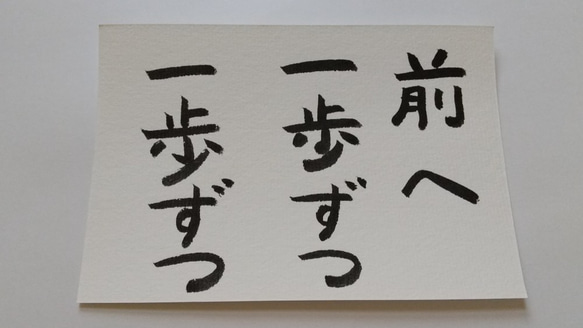 前へ
一歩ずつ
一歩ずつ